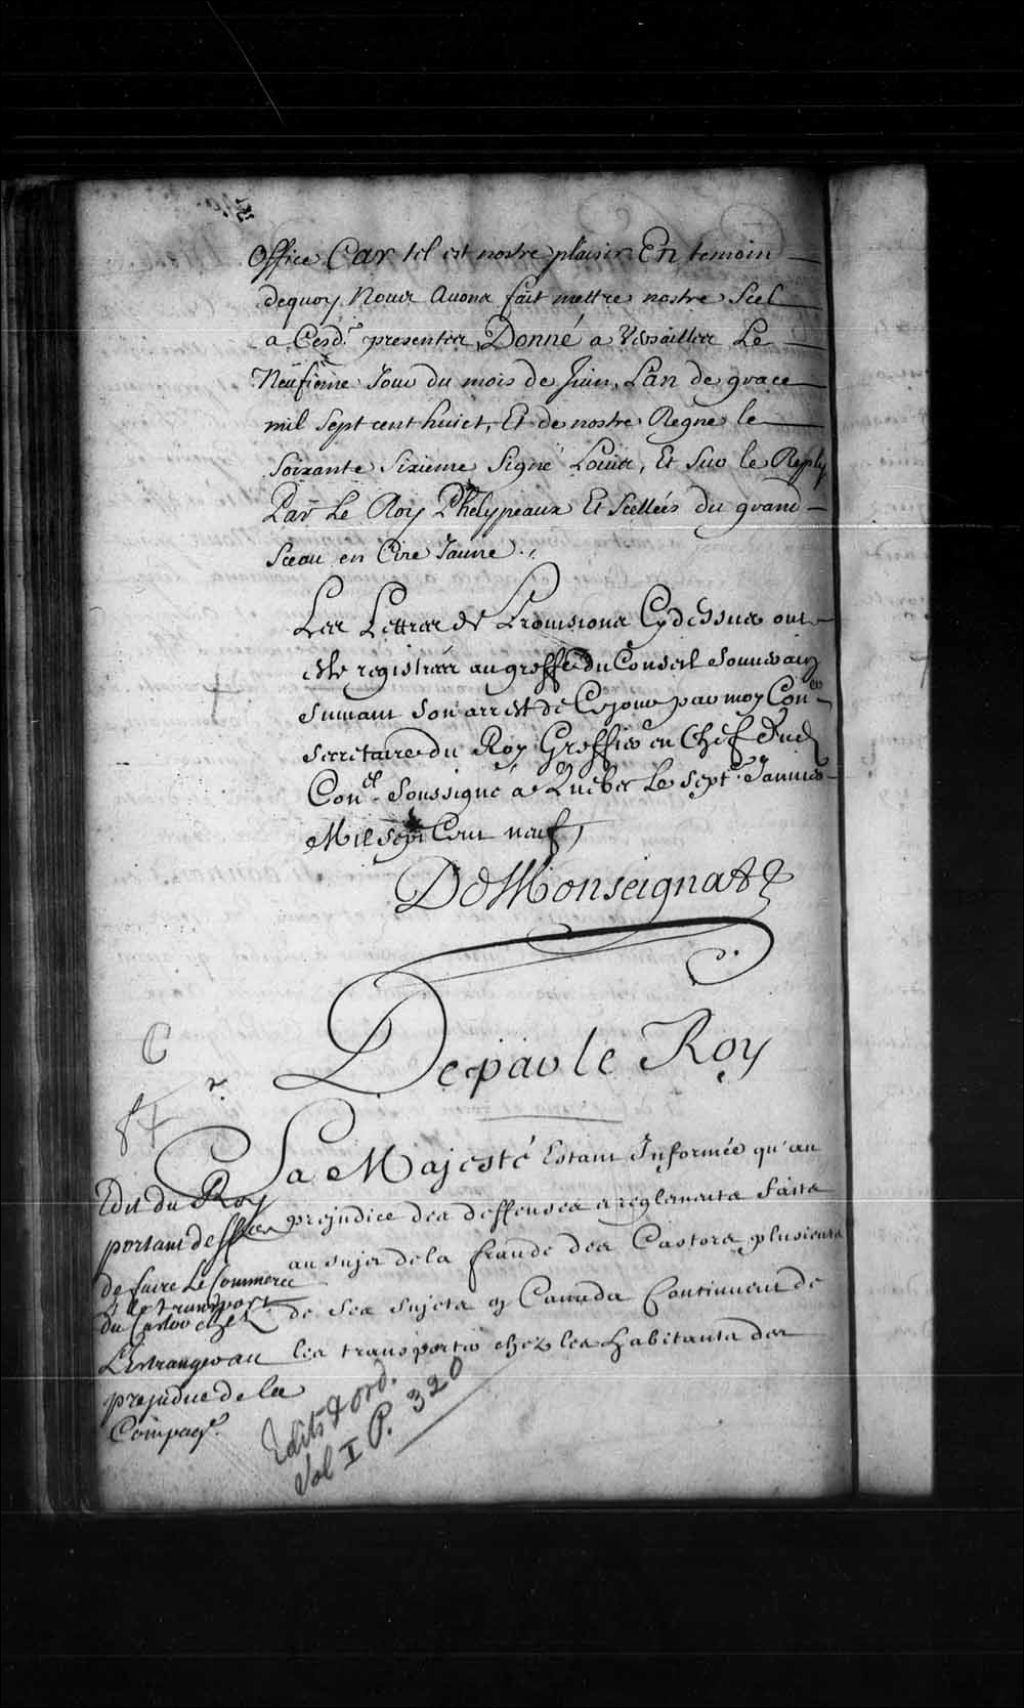 Office Car tel est nostre plaisir En temoin
dequoy Nous Avons fait mettre nostre Scel
a Cesd. presentes, Donné a Versailles Le
Neufieme Jour du mois de Juin, Lan de grace
mil Sept cent huict, Et de nostre Regne le
Soixante Sixieme Signé Louis, Et Sur le Reply
Par Le Roy Phelypeaux Et Scellées du grand
Sceau en Cire Jaune.
Les Lettres de Provisions Cy dessus ont
esté registrées au greffe du Conseil Souverain
suivant Son arrest de Ce jour par moy Con.er
secretaire du Roy Greffier en Chef Aud.
Con.el Soussigné a Quebec Le sept.e Janvier
Mil Sept Cent neuf
De Monseignat
De par le Roy
Sa Majesté Estant Informée qu'au
prejudice des deffenses et reglements faits
au sujet de la fraude des Castors plusieurs
de Ses Sujets en Canada Continuent de
les transporter chez les habitants des
C
Edit du Roy
portant deffenses
de faire Le Commerce
& le transport
du Castor chez
L'Estranger au
prejudice de la
Compag.e
Edits & ord.
Vol I P. 320